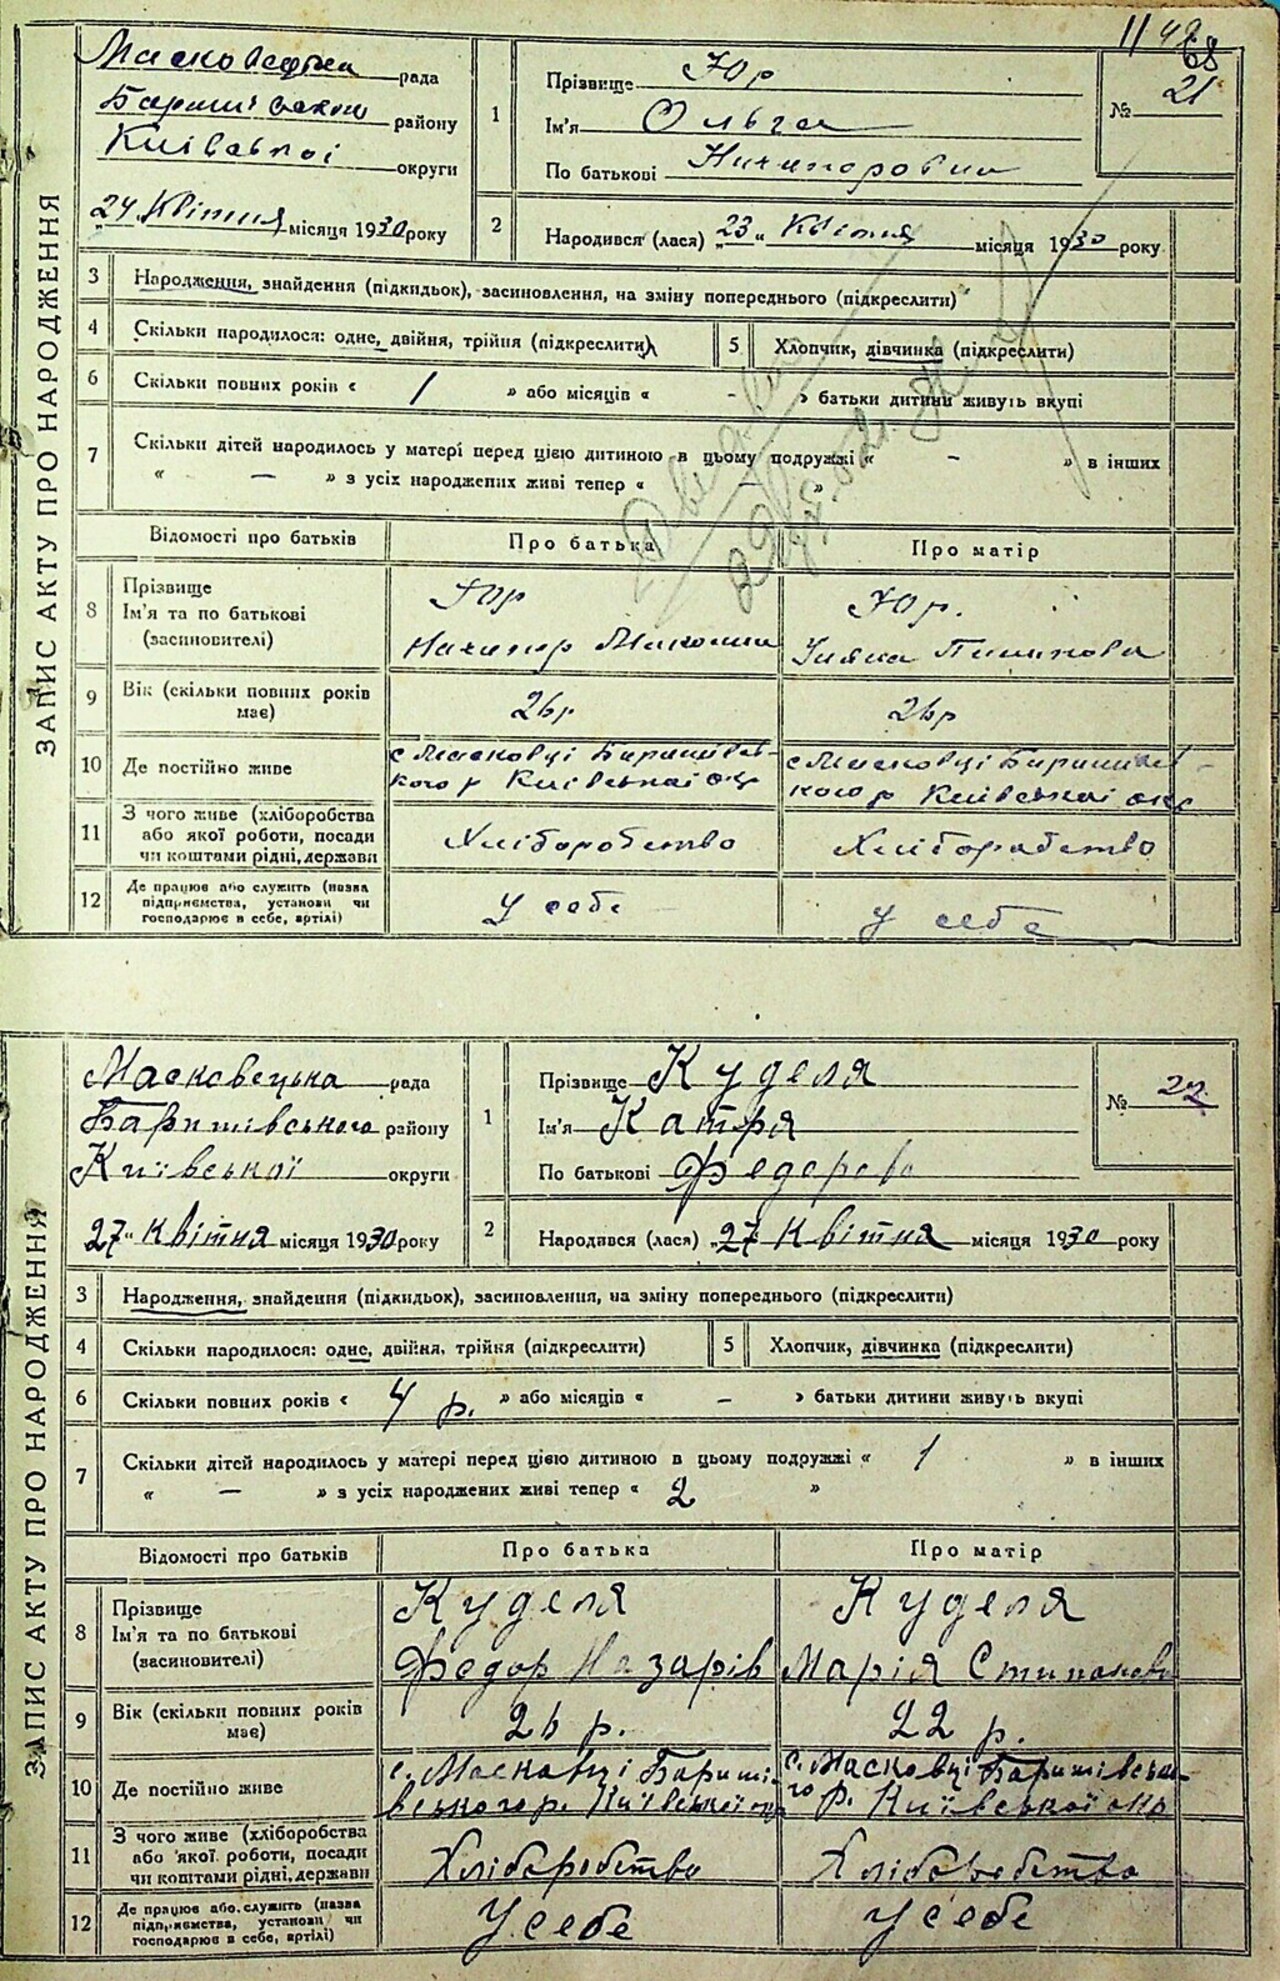 1149
68
ЗАПИС АКТУ ПРО НАРОДЖЕННЯ
Масковецька рада
району
Київської округи
„24 квітня місяця 1930 року
1
Прізвище Юр
Ім'я Ольга
По батькові Ничипоровна
№ 21
2
Народився (лася) „23 “ квітня місяця 1930 року
3 Народження, знайдення (підкидьок), засиновлення, на зміну попереднього (підкреслити)
4 Скільки народилося: одне, двійня, трійня (підкреслити)
5 Хлопчик, дівчинка (підкреслити)
6 Скільки повних років « 1 » або місяців « - » батьки дитини живуть вкупі
7 Скільки дітей народилось у матері перед цією дитиною в цьому подружжі « - » в інших
« — » з усіх народжених живі тепер « - »
Відомості про батьків Про батька Про матір
8 Прізвище
Ім'я та по батькові
(засиновителі)
Юр
Ничипор
Юр.
Уляна
9 Вік (скільки повних років
має)
26р
26р
10 Де постійно живе
с Масковці Баришівсь-
кого р Київської окр
с Масковці Баришівсь-
кого р Київської окр
11 З чого живе (хліборобства
або якої роботи, посади
чи коштами рідні, держави
Хліборобство
Хліборобство
12 Де працює або служить (назва
підприємства, установи чи
господарює в себе, артілі)
У себе
У себе
ЗАПИС АКТУ ПРО НАРОДЖЕННЯ
Масковецька рада
Баришівського району
Київської округи
27 “ квітня місяця 1930 року
1
Прізвище Куделя
Ім'я Катря
По батькові Федорова
№ 22
2
Народився (лася) „27 квітня місяця 1930 року
3 Народження, знайдення (підкидьок), засиновлення, на зміну попереднього (підкреслити)
4 Скільки народилося: одне, двійня, трійня (підкреслити)
5 Хлопчик, дівчинка (підкреслити)
6 Скільки повних років « 4 р. » або місяців « - » батьки дитини живуть вкупі
7 Скільки дітей народилось у матері перед цією дитиною в цьому подружжі « 1 » в інших
« — » з усіх народжених живі тепер « 2 »
Відомості про батьків Про батька Про матір
8 Прізвище
Ім'я та по батькові
(засиновителі)
Куделя
Федор Назарів
Куделя
Марія Стипанова
9 Вік (скільки повних років
має)
26 р.
22 р.
10 Де постійно живе
с. Масковці Бариші-
вського р. Київської окр
с. Масковці Баришівсько-
го р. Київської окр
11 З чого живе (хліборобства
або якої роботи, посади
чи коштами рідні, держави
Хліборобство
Хліборобство
12 Де працює або служить (назва
підприємства, установи чи
господарює в себе, артілі)
У себе
У себе